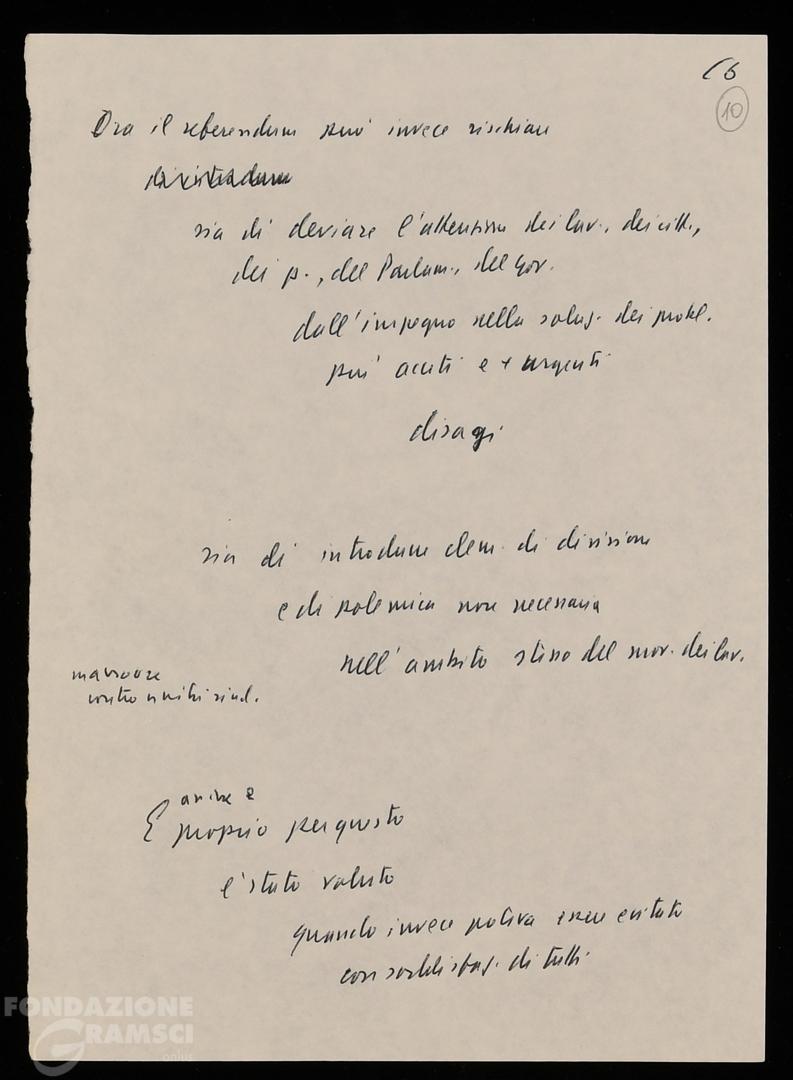 C6
10
Ora il referendum può invece rischiare
di introdurre
sia di deviare l'attenzione dei lav., dei citt.,
dei p., del Parlam., del gov.
dall'impegno nella soluz. dei probl.
più acuti e + urgenti
disagi
sia di introdurre elem. di divisione
e di polemica non necessaria
nell'ambito stesso del mov. dei lav.
manovre
contro unità sind.
anche e
E proprio per questo
è stato voluto
quando invece poteva essere evitato
con soddisfaz. di tutti
FONDAZIONE
GRAMSCI
onlus